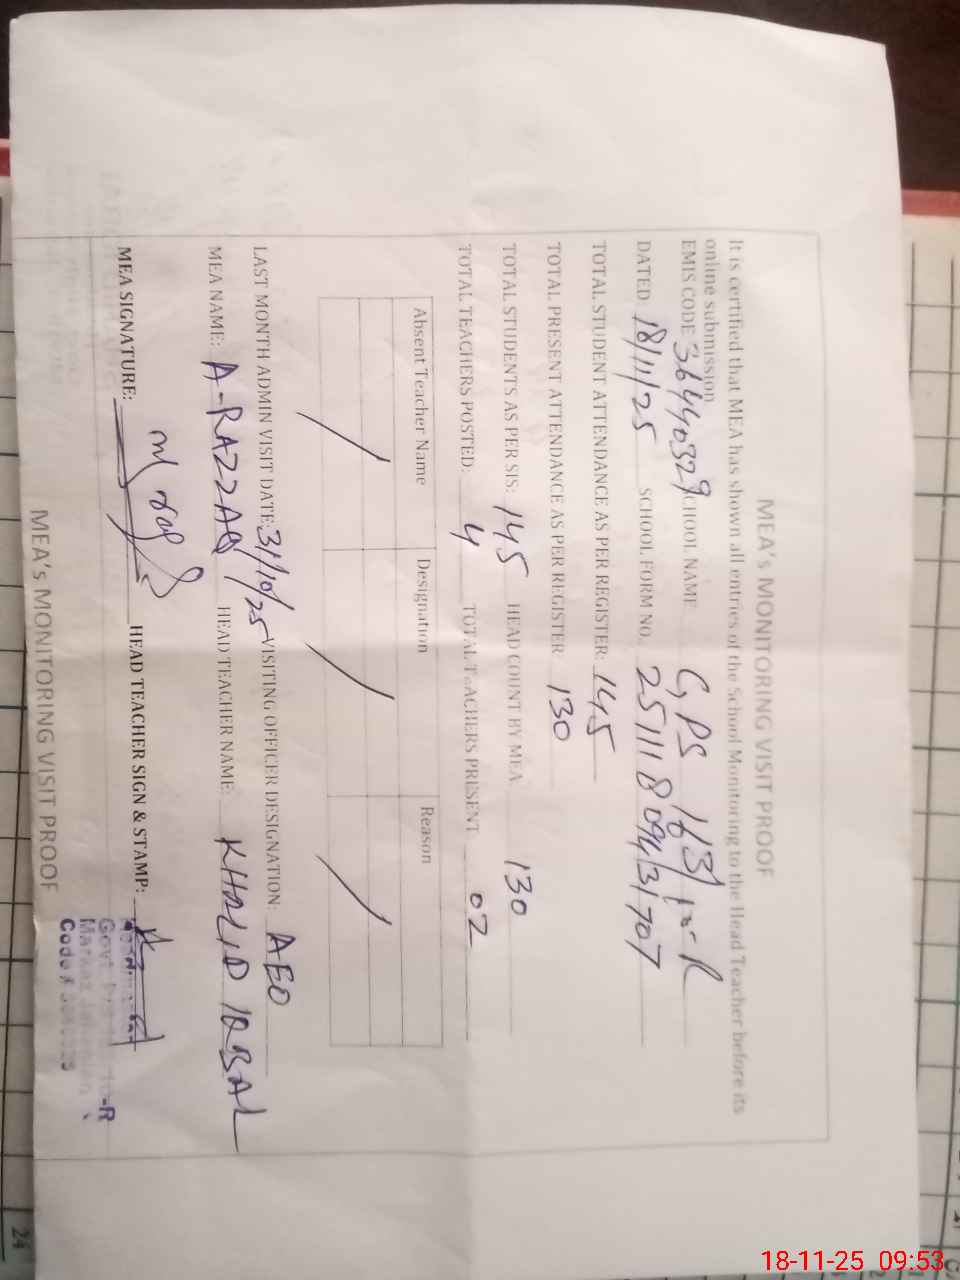 MEA's MONITORING VISIT PROOF
It is certified that MEA has shown all entries of the School Monitoring to the Head Teacher before its
online submission
EMIS CODE 36440329 SCHOOL NAME GPS 163/10-R
DATED 18/11/25 SCHOOL FORM NO. 25111809431707
TOTAL STUDENT ATTENDANCE AS PER REGISTER: 145
TOTAL PRESENT ATTENDANCE AS PER REGISTER 130
TOTAL STUDENTS AS PER SIS: 145 HEAD COUNT BY MEA 130
TOTAL TEACHERS POSTED: 4 TOTAL TEACHERS PRESENT 02
Absent Teacher Name Designation Reason
LAST MONTH ADMIN VISIT DATE: 31/10/25 VISITING OFFICER DESIGNATION: AEO
MEA NAME: A-RAZZAQ HEAD TEACHER NAME: KHALID IQBAL
MEA SIGNATURE: HEAD TEACHER SIGN & STAMP:
Govt -R
Markaz
Code #
MEA's MONITORING VISIT PROOF
24
18-11-25 09:53